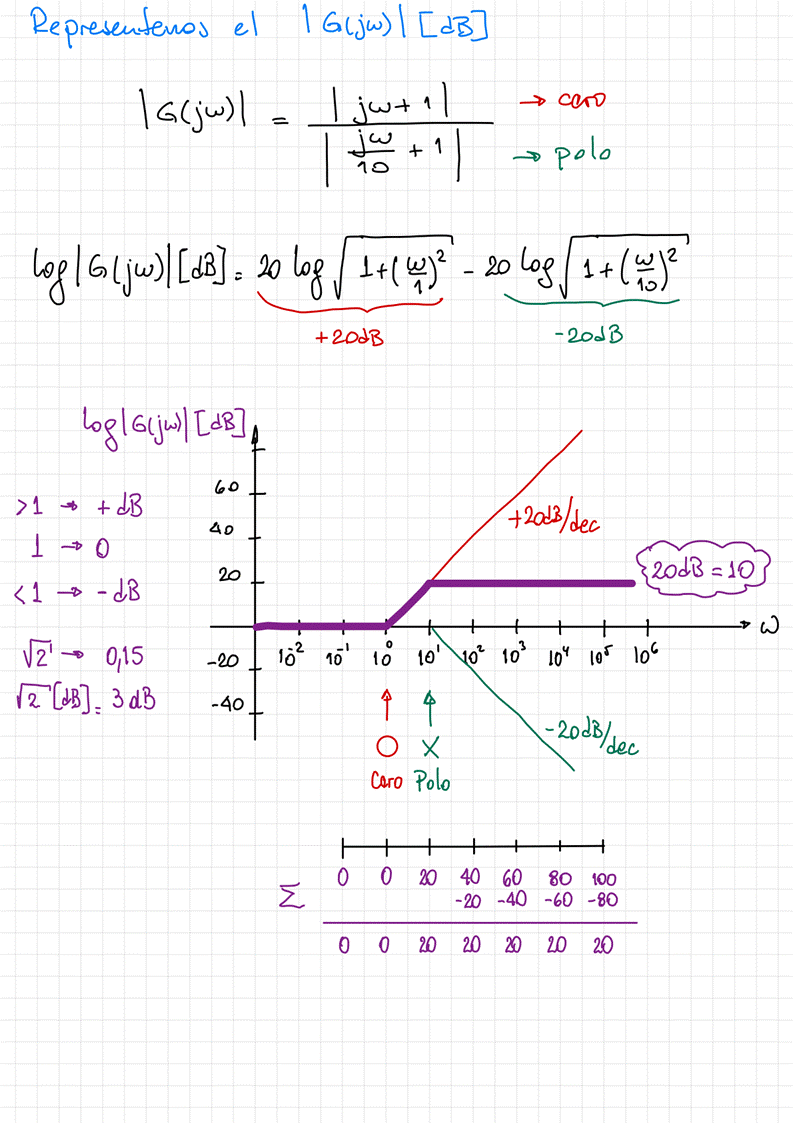 Representemos el |G(jω)| [dB]
|G(jω)| = |jω + 1| / |jω/10 + 1|
→ cero
→ polo
log|G(jω)|[dB] = 20 log √(1+(ω/1)²) - 20 log √(1+(ω/10)²)
+20dB
-20dB
log|G(jω)| [dB]
>1 → +dB
1 → 0
<1 → -dB
√2 → 0,15
√2 [dB] = 3 dB
60
40
20
-20
-40
+20dB/dec
20dB = 10
ω
10⁻² 10⁻¹ 10⁰ 10¹ 10² 10³ 10⁴ 10⁵ 10⁶
-20dB/dec
Cero Polo
Σ
0 0 20 40 60 80 100
-20 -40 -60 -80
0 0 20 20 20 20 20